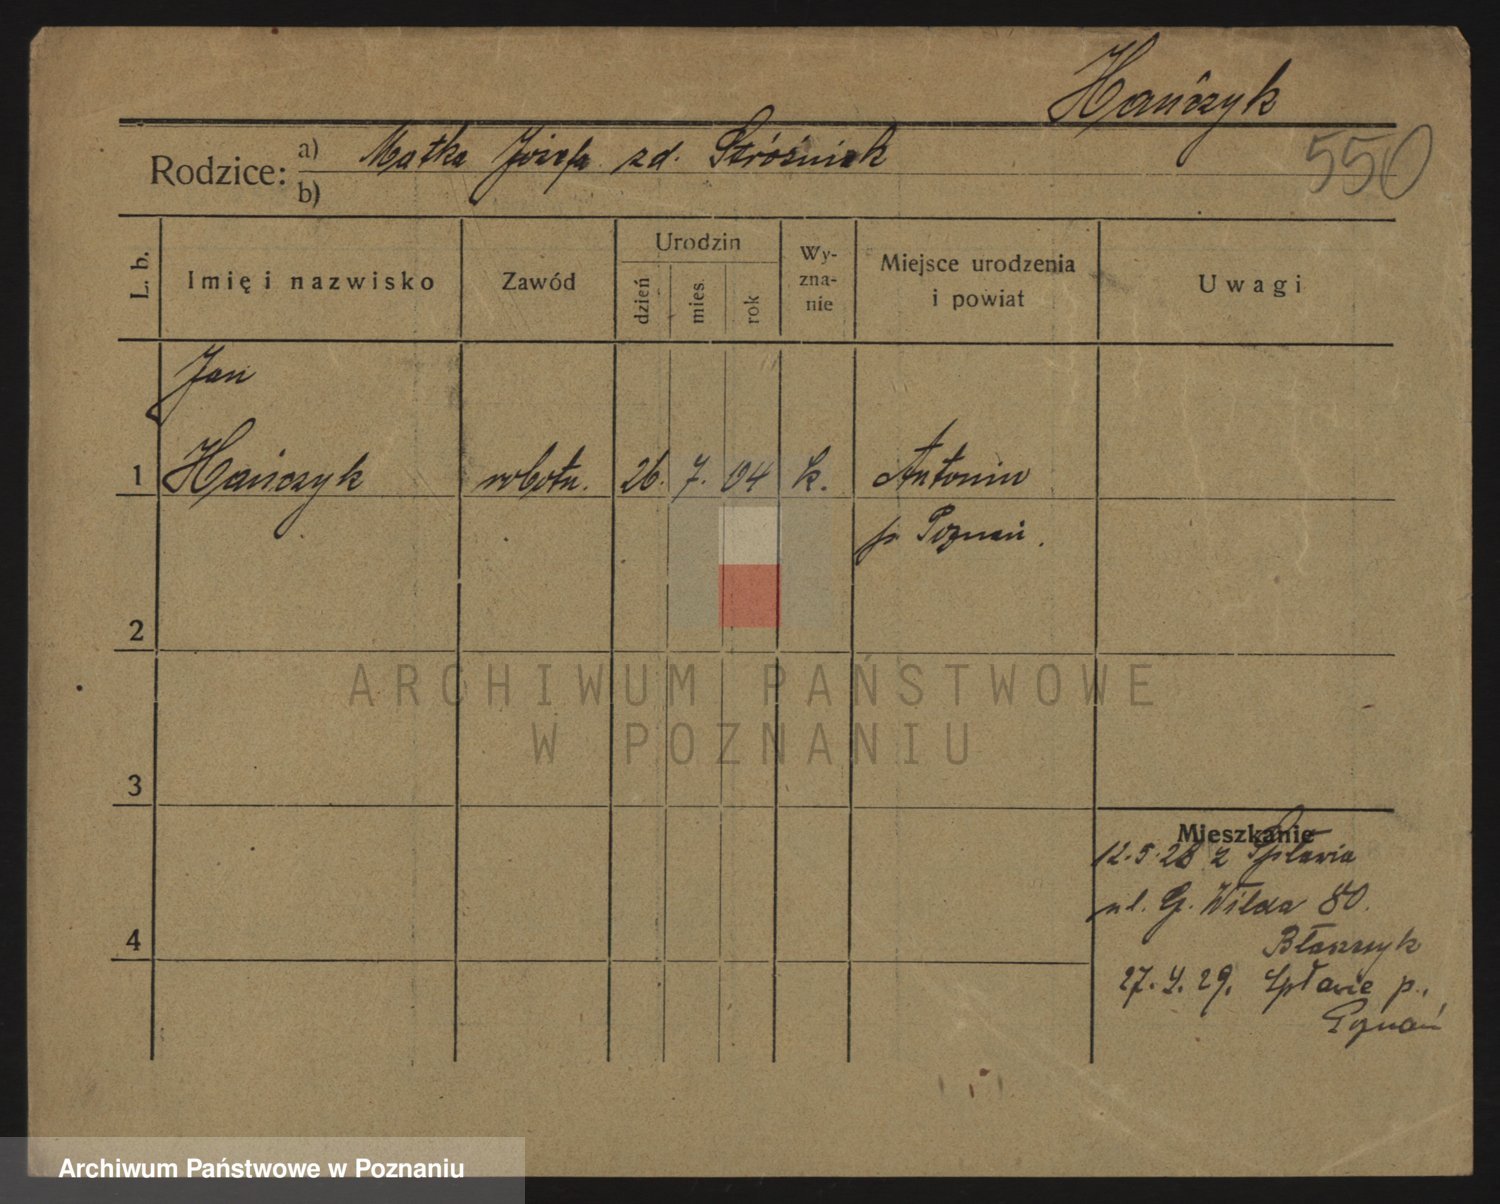 Hańczyk
550
Rodzice: a) Matka Józefa zd. Stróżniak
b)
L. b.
Imię i nazwisko
Zawód
Urodzin
dzień
mies.
rok
Wy-
zna-
nie
Miejsce urodzenia
i powiat
Uwagi
Jan
1 Hańczyk robotn. 26. 7. 04 k. Antonin
p Poznań.
2
3
4
ARCHIWUM PAŃSTWOWE
W POZNANIU
Mieszkanie
12.5.28 z Spławia
ul. G. Wilda 80.
Błaszczyk
27.4.29. Spławie p.,
Poznań
Archiwum Państwowe w Poznaniu